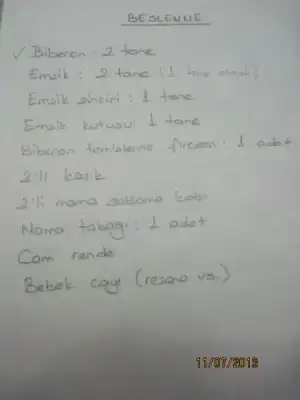 BESLENME
✓ Biberon : 2 tane
Emzik : 2 tane (1 tane
Emzik zinciri : 1 tane
Emzik kutusu 1 tane
Biberon temizleme fırçası : 1 adet
2'li kaşık
2'li mama saklama kabı
Mama tabağı : 1 adet
Cam rende
Bebek çayı (rezene vs.)
11/07/2013